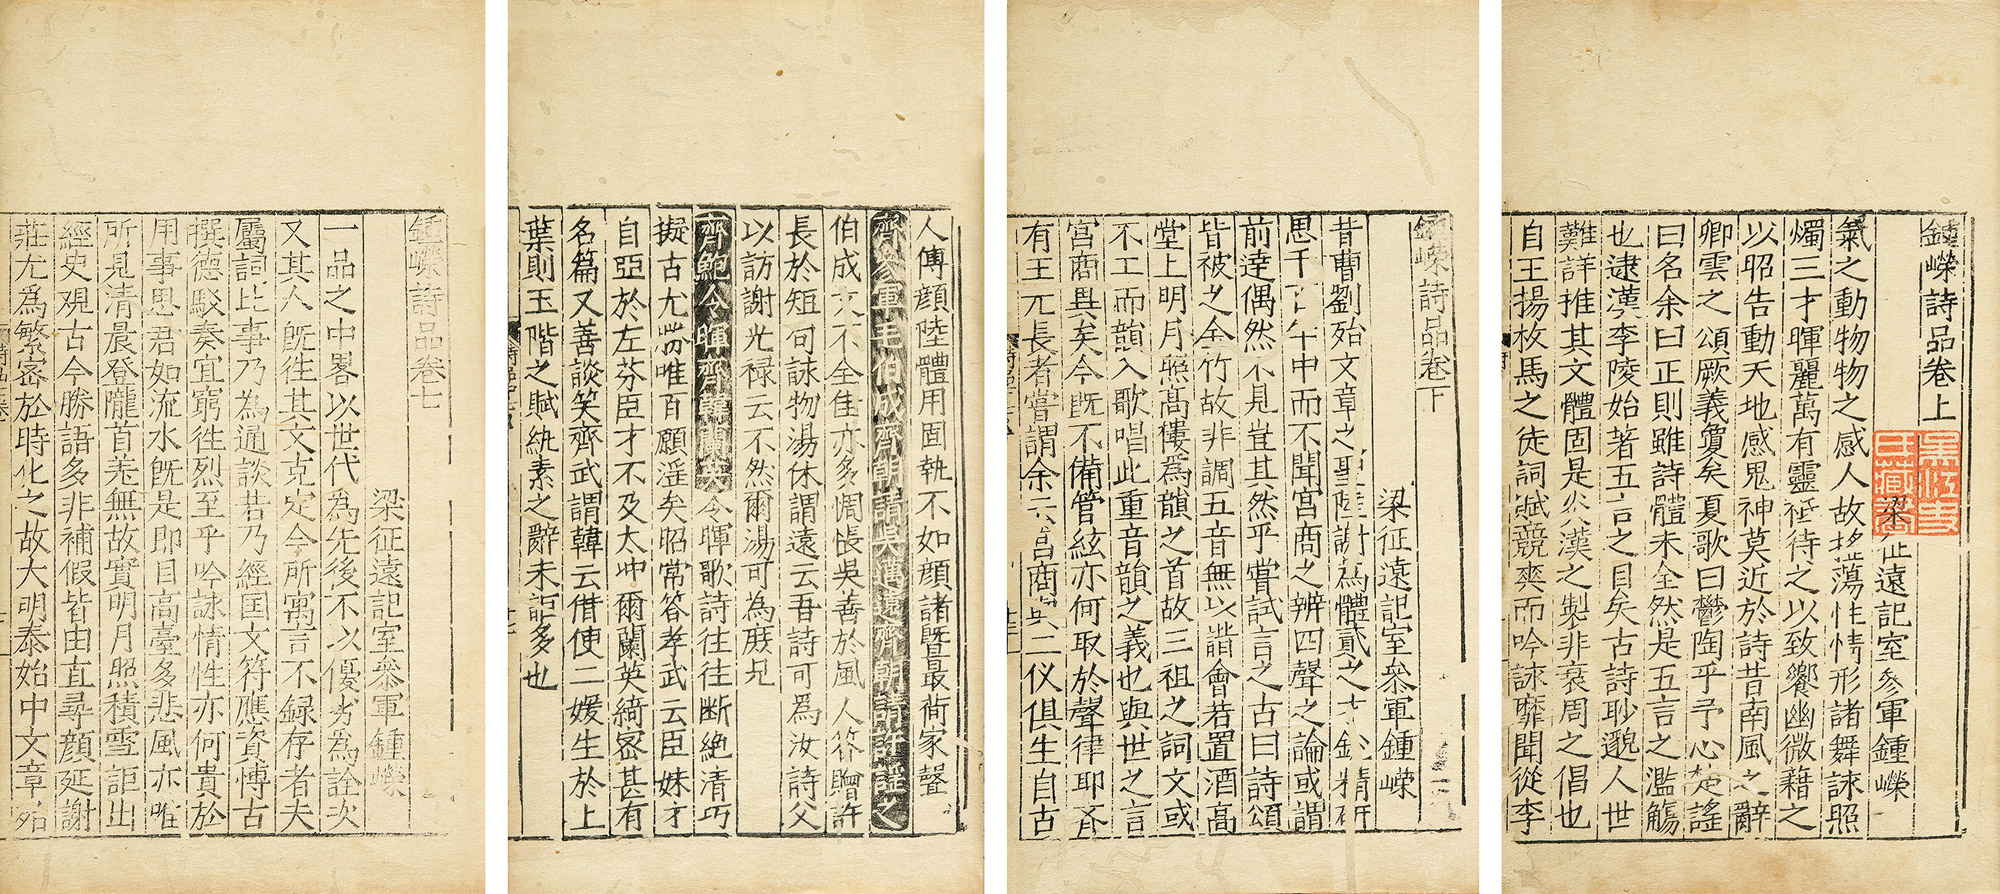 鍾嶸詩品卷上
梁征遠記室參軍鍾嶸
氣之動物物之感人故搖蕩性情形諸舞詠照
燭三才暉麗萬有靈祇待之以致饗幽微藉之
以昭告動天地感鬼神莫近於詩昔南風之辭
卿雲之頌厥義敻矣夏歌曰鬱陶乎予心楚謠
曰名余曰正則雖詩體未全然是五言之濫觴
也逮漢李陵始著五言之目矣古詩眇邈人世
難詳推其文體固是炎漢之製非衰周之倡也
自王揚枚馬之徒詞賦競爽而吟詠靡聞從李
鍾嶸詩品卷下
梁征遠記室參軍鍾嶸
昔曹劉殆文章之聖陸謝為體貳之才銳精研
思千百年中而不聞宮商之辨四聲之論或謂
前達偶然不見豈其然乎嘗試言之古曰詩頌
皆被之金竹故非調五音無以諧會若置酒高
堂上明月照高樓為韻之首故三祖之詞文或
不工而韻入歌唱此重音韻之義也與世之言
宮商異矣今既不備管絃亦何取於聲律耶齊
有王元長者嘗謂余云宮商與二仪俱生自古
人傅顏陸體用固執不如顏諸暨最荷家聲
齊參軍毛伯成齊朝請吳邁遠齊朝請許瑤之
伯成文不全佳亦多惆悵吳善於風人答贈許
長於短句詠物湯休謂遠云吾詩可為汝詩父
以訪謝光祿云不然爾湯可為庶兄
齊鮑令暉齊韓蘭英令暉歌詩往往断絕清巧
擬古尤勝唯百願淫矣昭常答孝武云臣妹才
自亞於左芬臣才不及太冲爾蘭英綺密甚有
名篇又善談笑齊武謂韓云借使二媛生於上
葉則玉階之賦紈素之辭未詎多也
鍾嶸詩品卷七
梁征遠記室參軍鍾嶸
一品之中畧以世代為先後不以優劣為詮次
又其人既往其文克定今所寓言不録存者夫
屬詞比事乃為通談若乃經国文符應資博古
撰德駁奏宜窮往烈至乎吟詠情性亦何貴於
用事思君如流水既是即目高臺多悲風亦唯
所見清晨登隴首羌無故實明月照積雪詎出
經史观古今勝語多非補假皆由直尋顏延謝
莊尤為繁密於時化之故大明泰始中文章殆